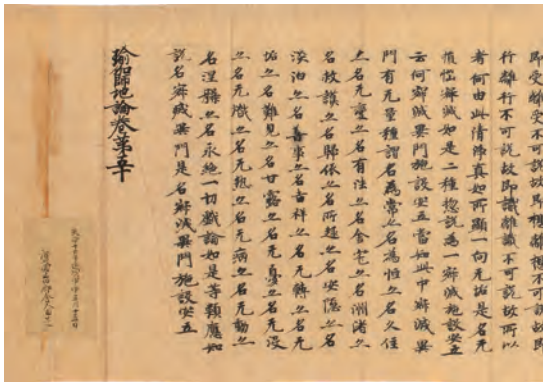 即受離受不可說故即想離想不可說故即
行離行不可說故即識離識不可說故所以
者何由此清淨真如所顯一向无垢是名无
損惱寂滅如是二種惣說為一寂滅施設安立
云何寂滅異門施設安立當知此中寂滅異
門有无量種謂名為常亦名為恒亦名久住
亦名无變亦名有法亦名舍宅亦名洲渚亦
名救護亦名歸依亦名所趣亦名安隱亦名
淡泊亦名善事亦名吉祥亦名无轉亦名无
垢亦名難見亦名甘露亦名无憂亦名无沒
亦名无熾亦名无熱亦名无病亦名无動亦
名涅槃亦名永絕一切戲論如是等類應知
說名寂滅異門是名寂滅異門施設安立
瑜伽師地論卷第五十